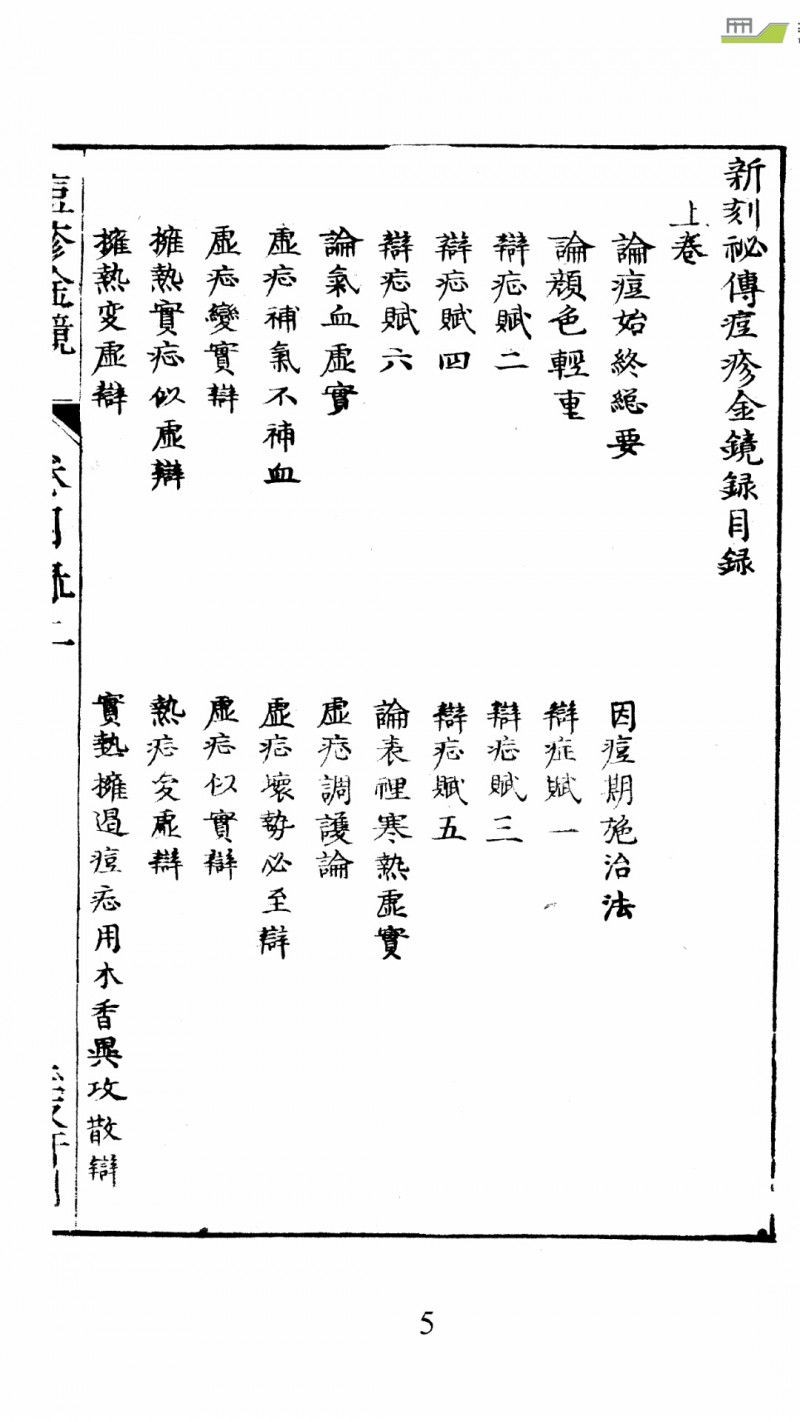 新刻祕傳痘疹金鏡録目録
上卷
論痘始終緫要
因痘期施治法
論顔色輕重
辯症賦一
辯症賦二
辯症賦三
辯症賦四
辯症賦五
辯症賦六
論表裡寒熱虛實
論氣血虛實
虛症調護論
虛症補氣不補血
虛症壞勢必至辯
虛症變實辯
虛症似實辯
擁熱實症似虛辯
熱症变虛辯
擁熱变虛辯
實熱擁遏痘症用木香異攻散辯
痘疹金鏡
5